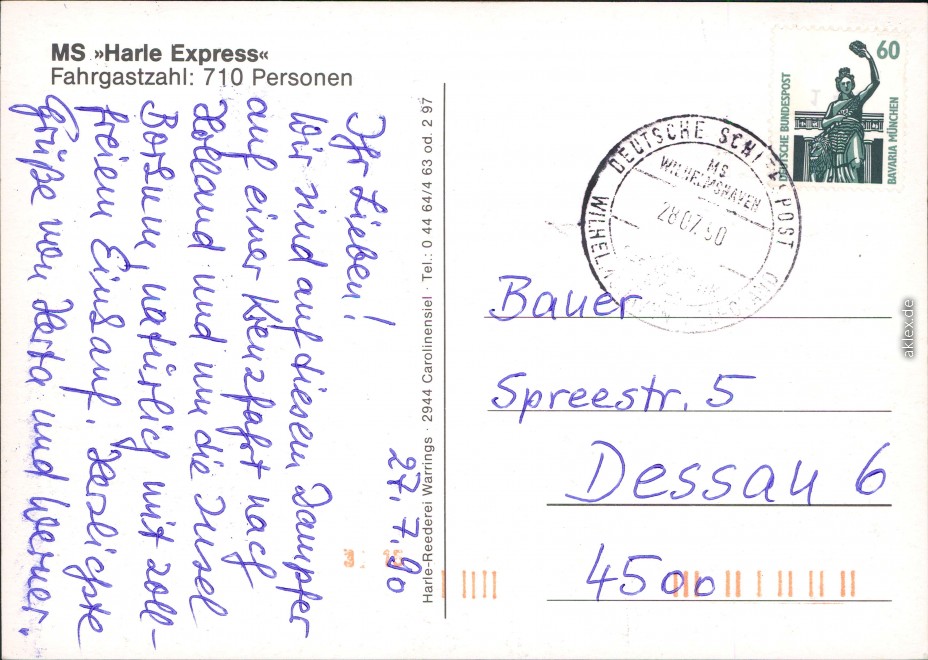 MS »Harle Express«
Fahrgastzahl: 710 Personen
27. 7. 90
Ihr Lieben!
Wir sind auf diesem Dampfer
auf einer Kreuzfahrt nach
Holland und um die Insel
Borkum, natürlich mit zoll-
freiem Einkauf. Herzlichste
Grüße von Herta und Werner.
Harle-Reederei Warrings · 2944 Carolinensiel · Tel.: 0 44 64/4 63 od. 2 97
DEUTSCHE SCHIFFSPOST
MS
WILHELMSHAVEN
28.07.90
60
DEUTSCHE BUNDESPOST
BAVARIA MÜNCHEN
Bauer
Spreestr. 5
Dessau 6
4500
aklex.de